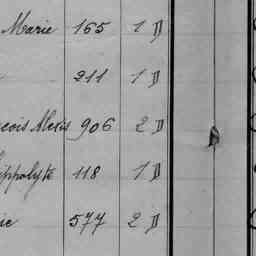 Marie 165 1 D
211 1 D
çois Alexis 906 2 D
ippolyte 118 1 D
ie 577 2 D